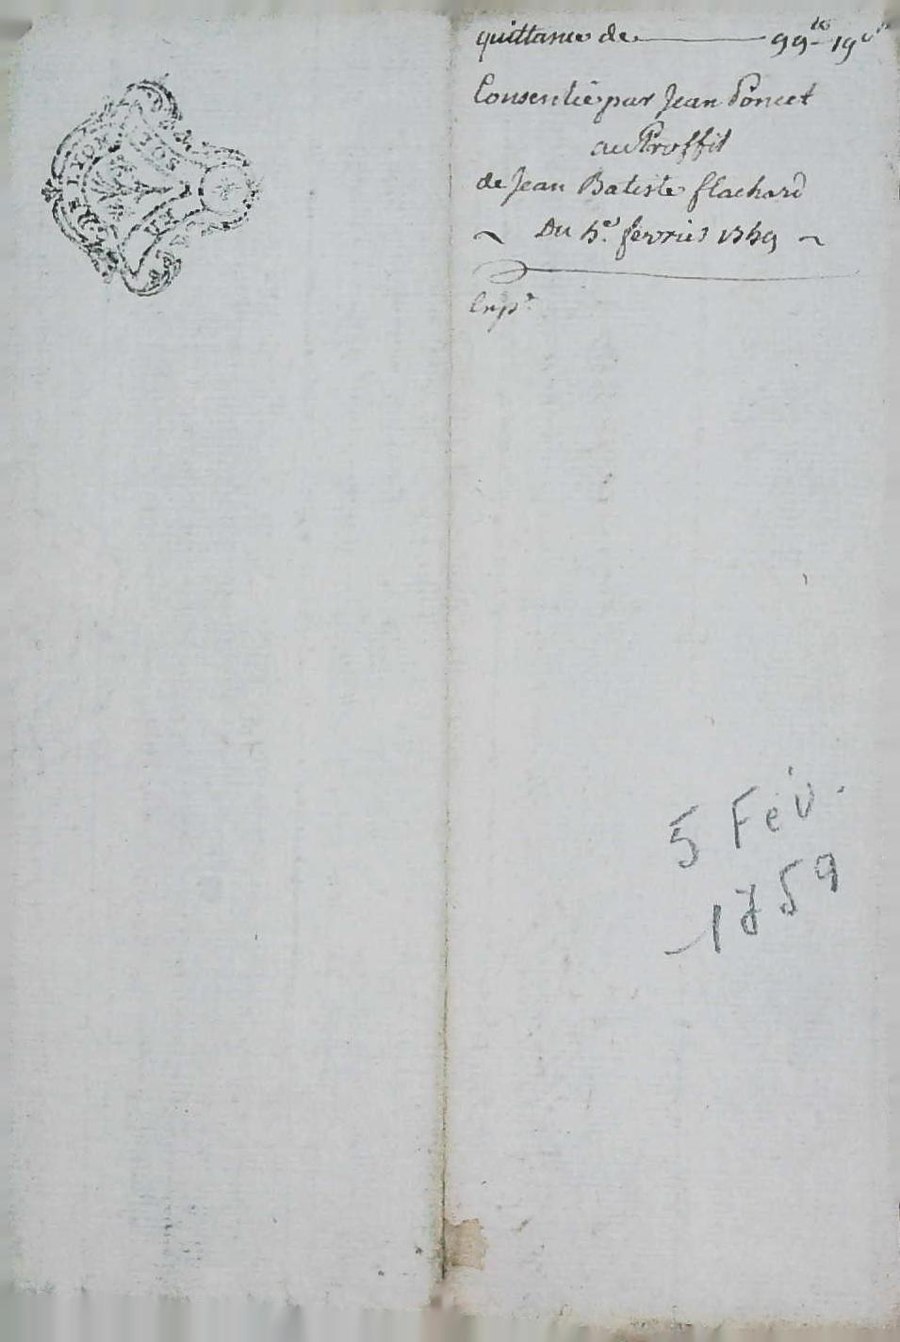 DE LYON
SOLS
quittance de 99tt 19s
Consentie par Jean Poncet
au Proffit
de Jean Batiste flachard
~ Du 5e. fevrier 1759 ~
Exp.e
5 Fév.
1759